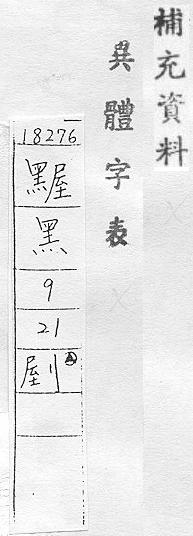 補充資料
異體字表
18276
黑
9
21
剭
A